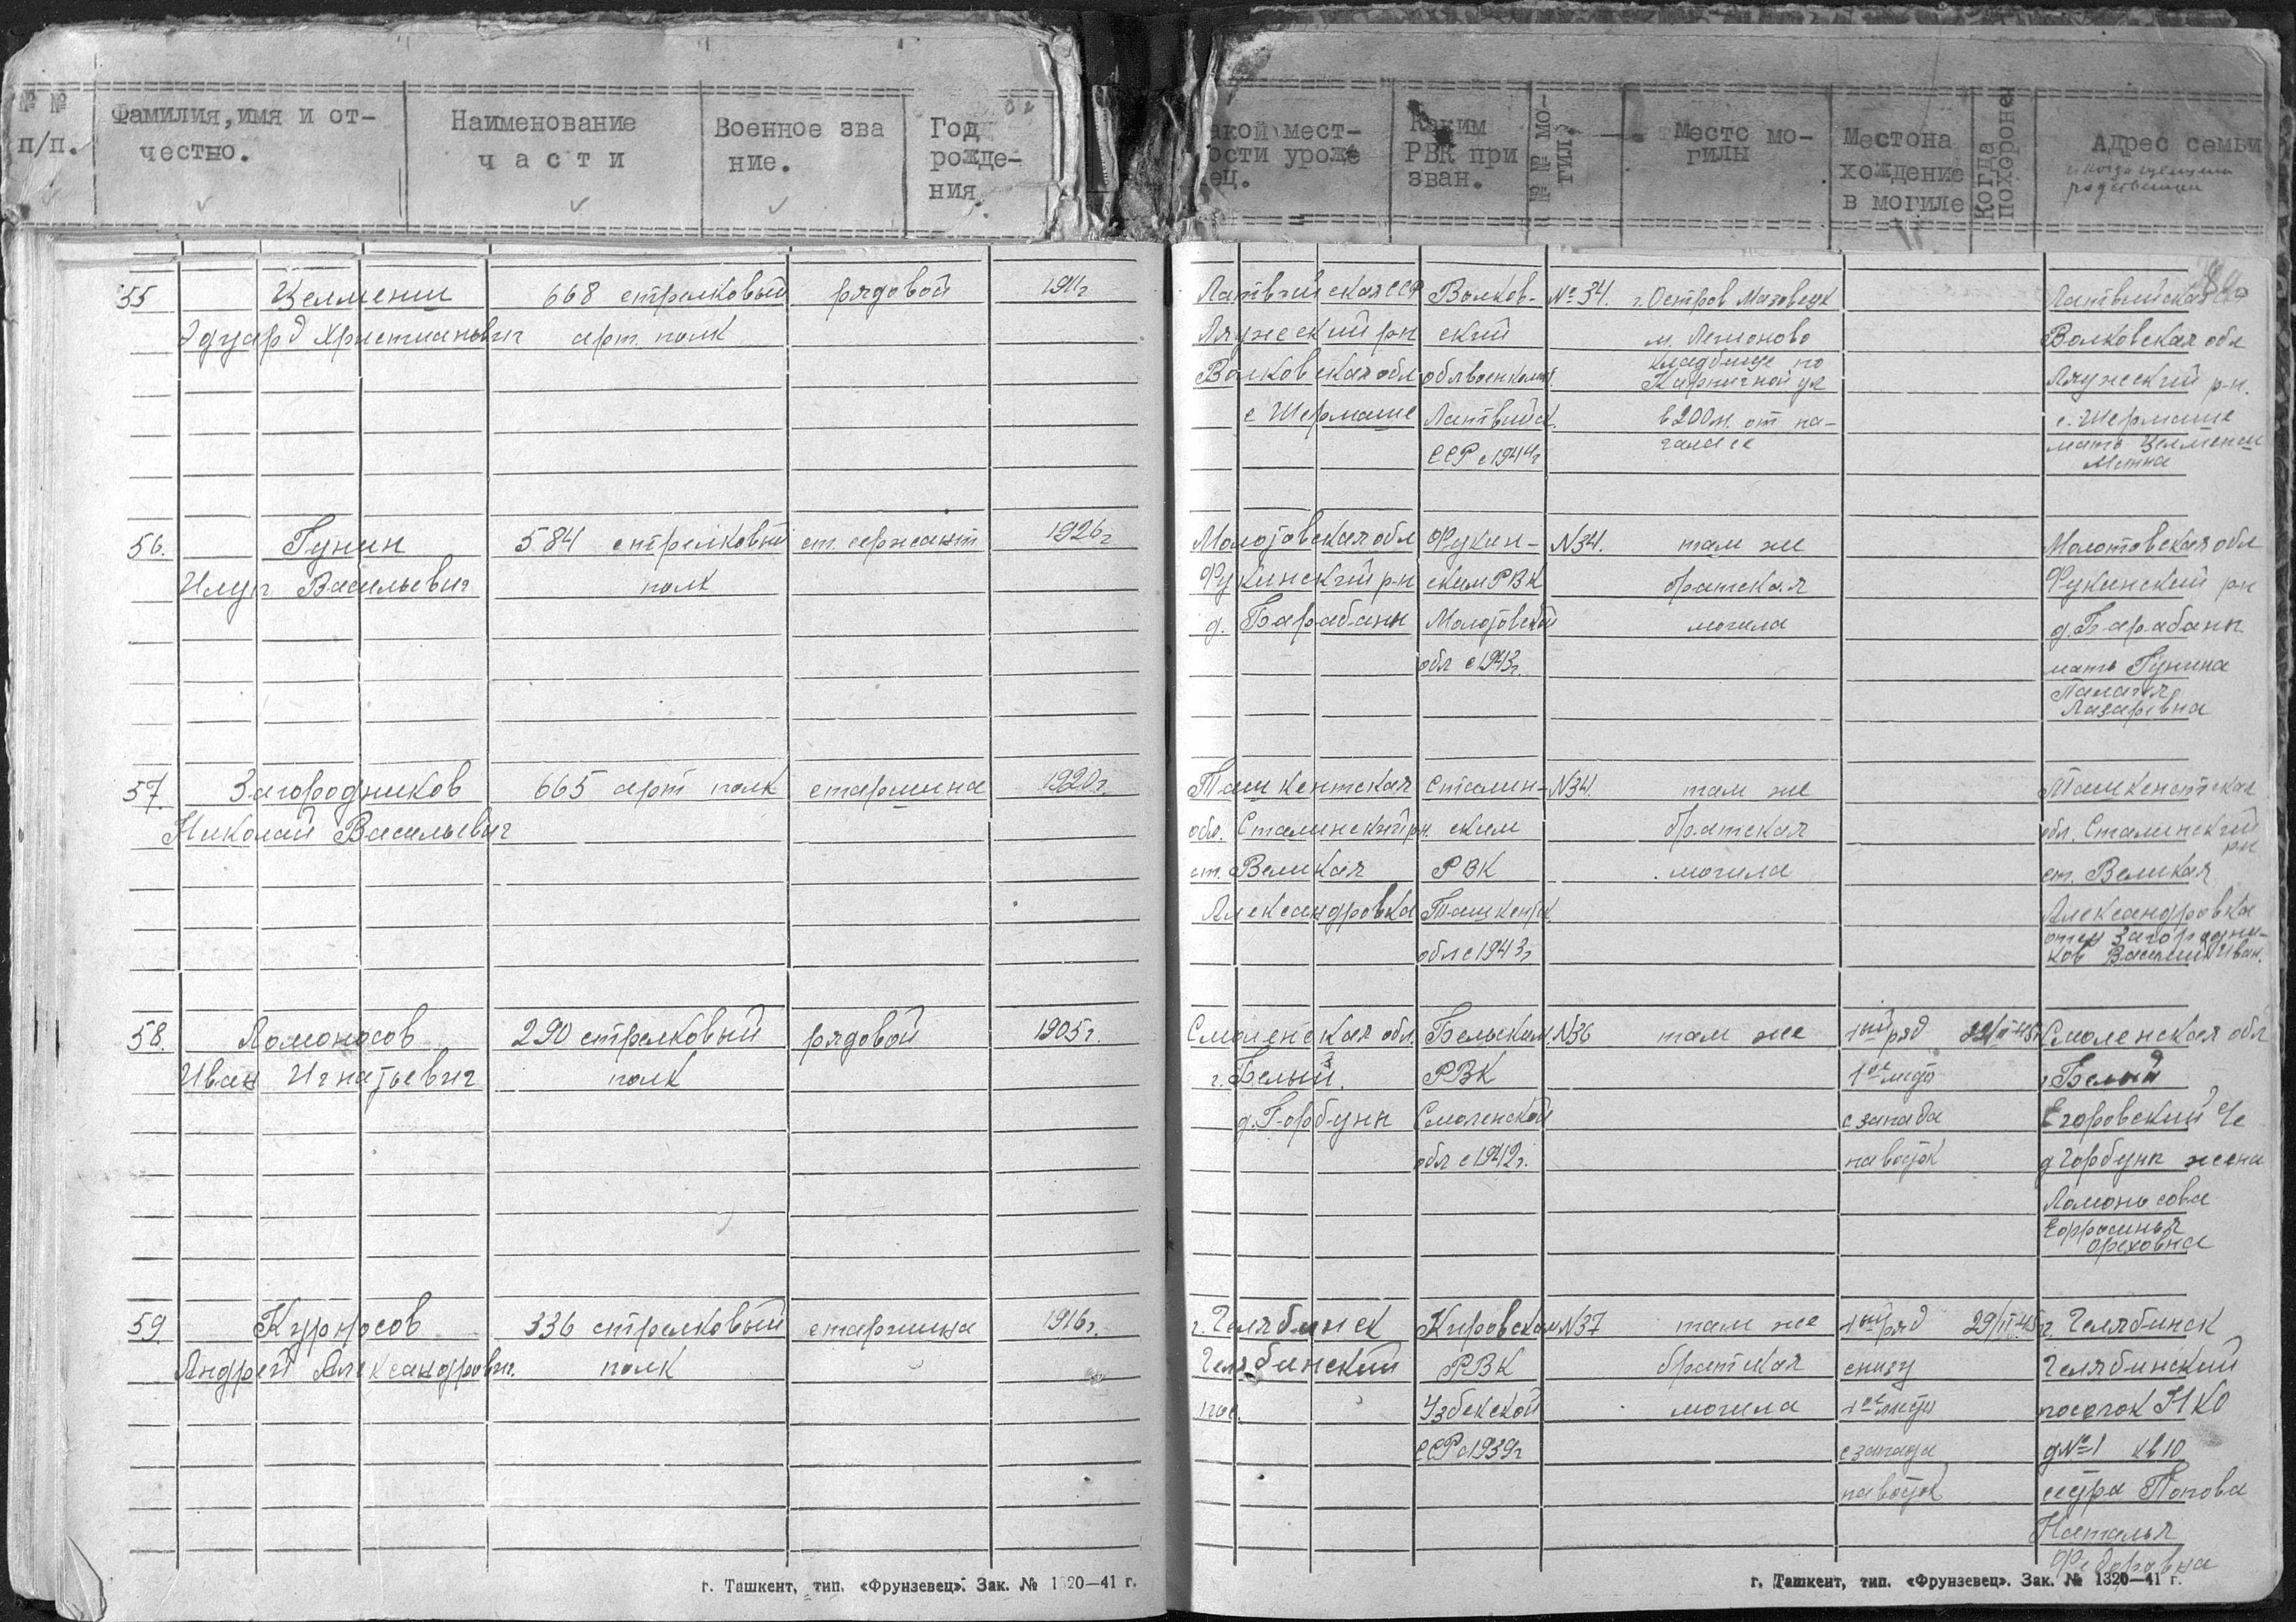 № №
п/п.
Фамилия, имя и от-
чество.
Наименование
части
Военное зва
ние.
Год
рожде-
ния
акой мест-
ости уроже
ец.
Каким
РВК при
зван.
№ № мо-
гил.
Место мо-
гилы
Местона
хождение
в могиле
Когда
похоронен
Адрес семьи
55 Целмени 668 стрелковый рядовой 1911г.
Эдуард Христианович арт. полк
Латвийская ССР
Лужеский р-н
Валковская обл
с Шермаше
Валков-
ский
облвоенкомат
Латвийск.
ССР с 1944г
№ 34.
г. Остров Мазовецк
м. Легионово
кладбище по
Кирпичной ул
в 200 м. от на-
чала ее
Латвийская
Валковская обл
Лужеский р-н.
с. Шермаше
мать Целмени
56. Гунин 584 стрелковый ст. сержант 1926г
Васильевич полк
Молотовская обл
Фукинский р-н
д. Барабаны
Фукин-
ским РВК
Молотовской
обл с 1943г.
N34.
там же
братская
могила
Молотовская обл
Фукинский р-н
д. Барабаны
мать Гунина
Палагея
Лазаревна
57. Загородников 665 арт полк старшина 1920г.
Николай Васильевич
Ташкентская
обл. Сталинский р-н.
ст. Великая
Александровка
Сталин-
ским
РВК
Ташкентск.
обл с 1943г
N34.
там же
братская
могила
Ташкентская
обл. Сталинский
р-н
ст. Великая
Александровка
отец Загородни-
ков Василий Иван.
58. Ломоносов 290 стрелковый рядовой 1905г.
Иван Игнатьевич полк
Смоленская обл.
г. Белый.
д. Горбуны
Бельским
РВК
Смоленской
обл с 1942г.
N36
там же
1ый ряд
1ое место
с запада
на восток
Смоленская обл
г Белый
Егоровский с/с
д Горбуны жена
Ломоносова
Ефросинья
Ореховна
59. Курносов 336 стрелковый старшина 1916г.
Андрей Александрович. полк
г. Челябинск
Челябинский
пос.
Кировским
РВК
Узбекской
ССР с 1939г
N37
там же
братская
могила
1ый ряд
снизу
1ое место
с запада
на восток
29/II-45
г. Челябинск
Челябинский
поселок НКО
д№1 кв 10
сестра Попова
Наталья
Федоровна
г. Ташкент, тип. «Фрунзевец». Зак. № 1320—41 г.
г. Ташкент, тип. «Фрунзевец». Зак. № 1320—41 г.